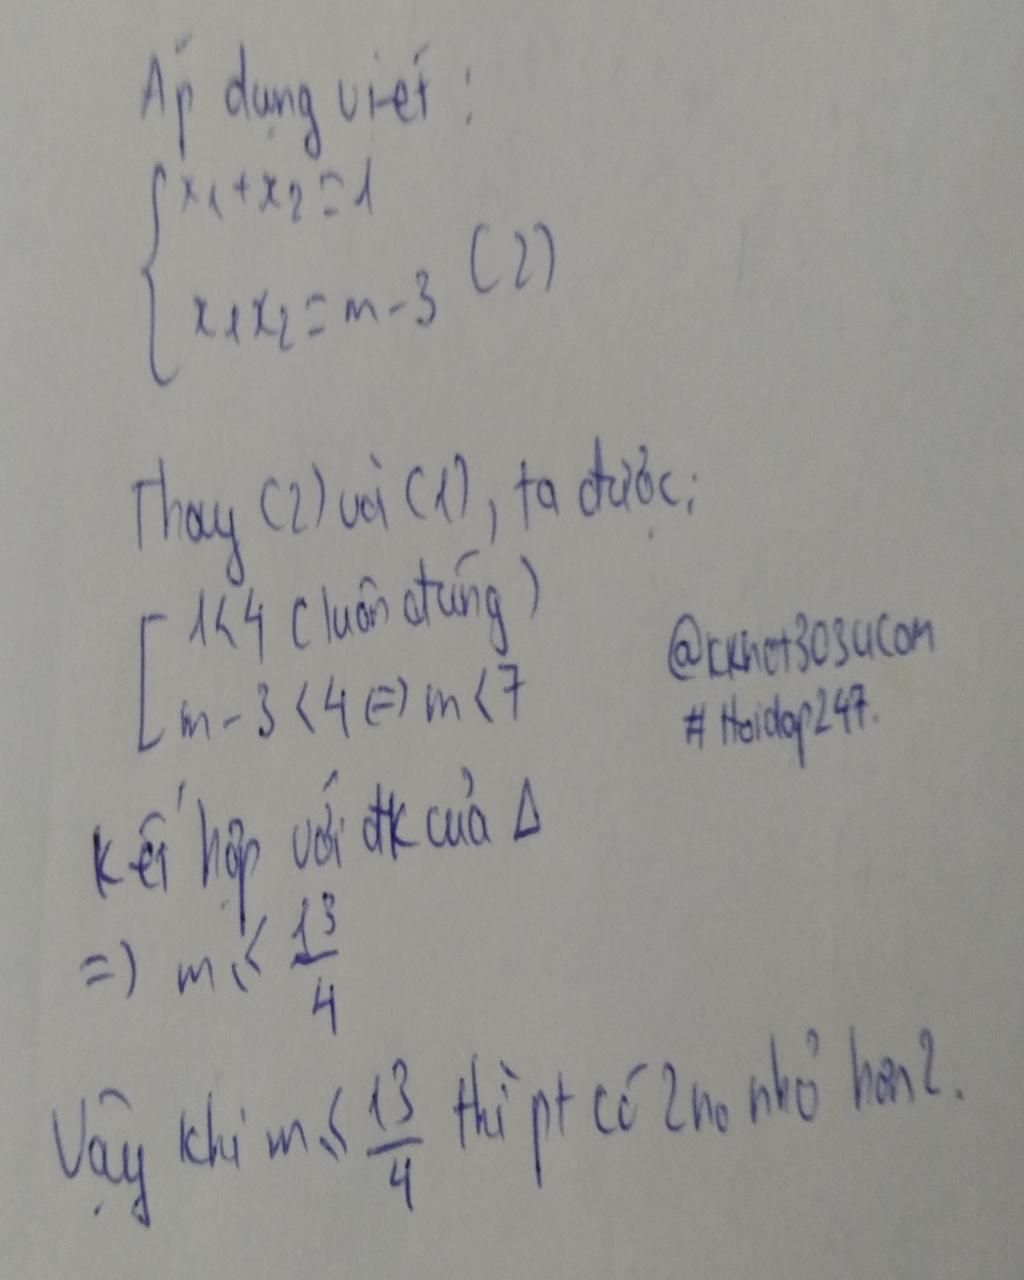 Áp dụng viét:
x₁+x₂=1
x₁x₂=m-3 (2)
Thay (2) và (1), ta được:
1<4 (luôn đúng)
m-3<4 ⇔ m<7
@kkhct3034com
#Hoidap247.
Kết hợp với đk của Δ
=) m ≤ 13/4
Vậy khi m ≤ 13/4 thì pt có 2 no nhỏ hơn 2.